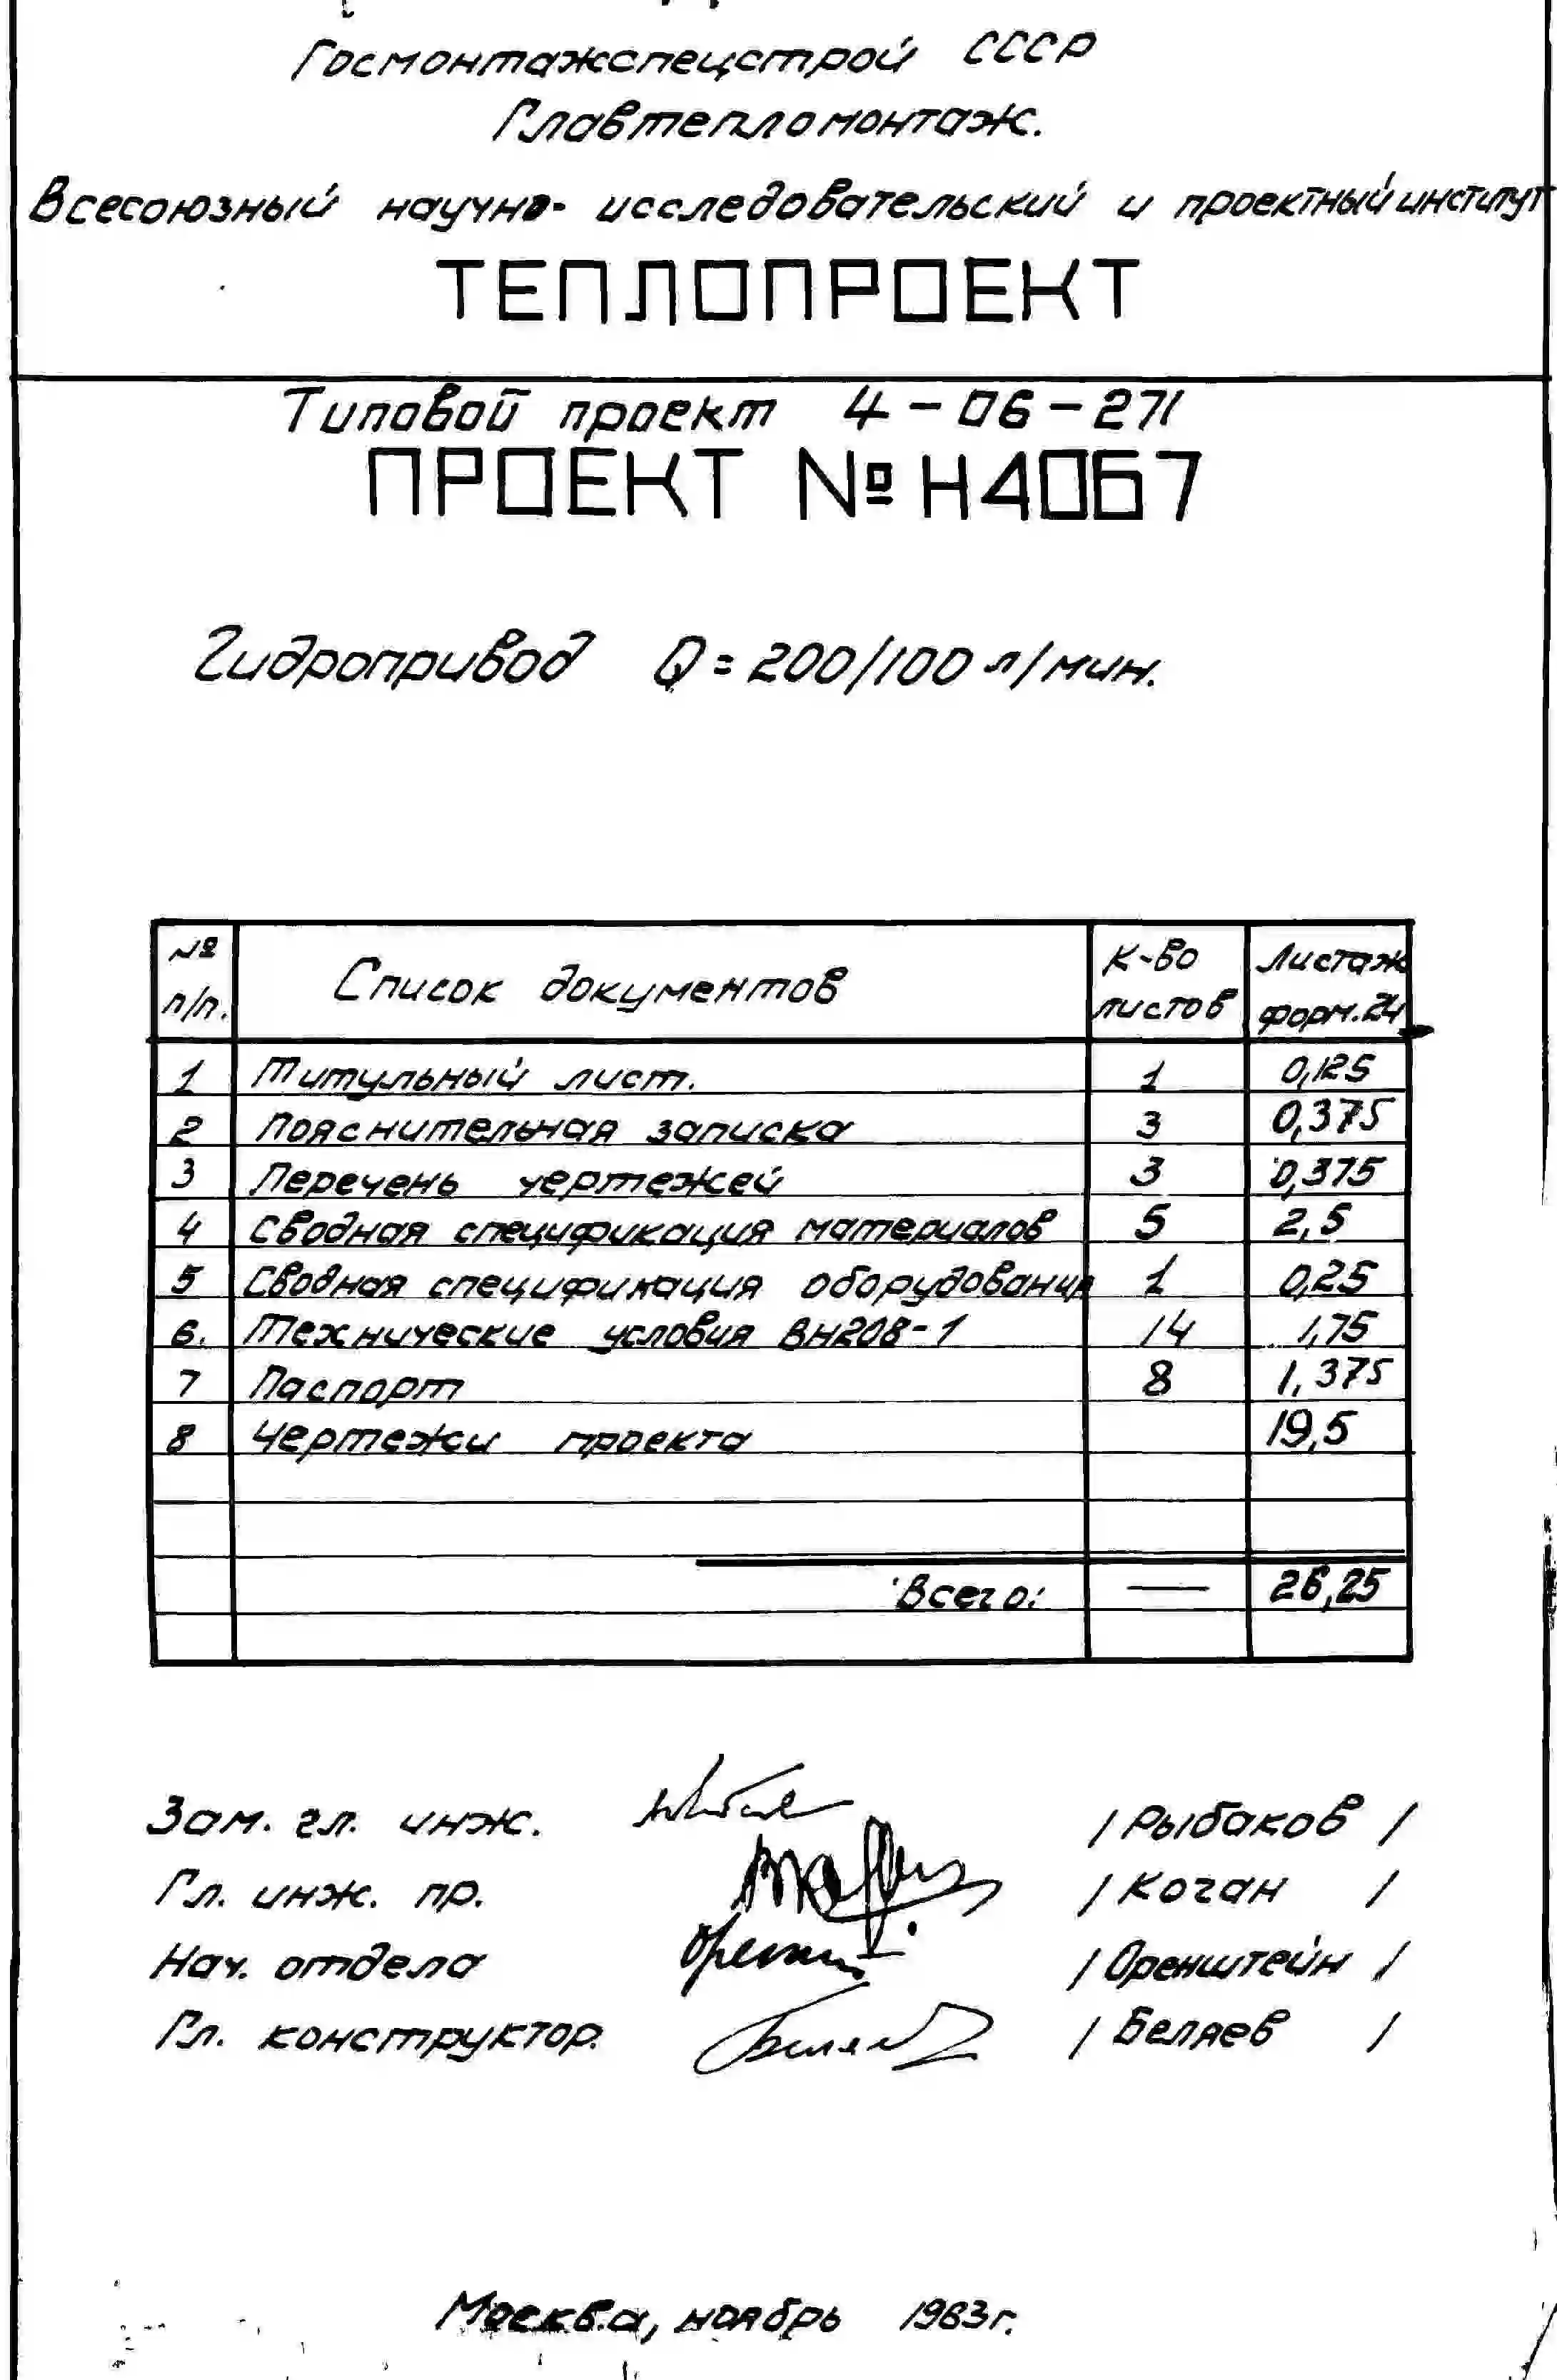 Госмонтажспецстрой СССР
Главтепломонтаж.
Всесоюзный научно-исследовательский и проектный институт
ТЕПЛОПРОЕКТ
Типовой проект 4-06-271
ПРОЕКТ № Н4067
Гидропривод Q = 200/100 л/мин.
№ п/п. Список документов К-во листов Листаж форм. 24
1 Титульный лист. 1 0,125
2 Пояснительная записка 3 0,375
3 Перечень чертежей 3 0,375
4 Сводная спецификация материалов 5 2,5
5 Сводная спецификация оборудования 1 0,25
6. Технические условия ВН208-1 14 1,75
7 Паспорт 8 1,375
8 Чертежи проекта 19,5
Всего: — 26,25
Зам. гл. инж. /Рыбаков/
Гл. инж. пр. /Коган/
Нач. отдела /Оренштейн/
Гл. конструктор. /Беляев/
Москва, ноябрь 1963г.